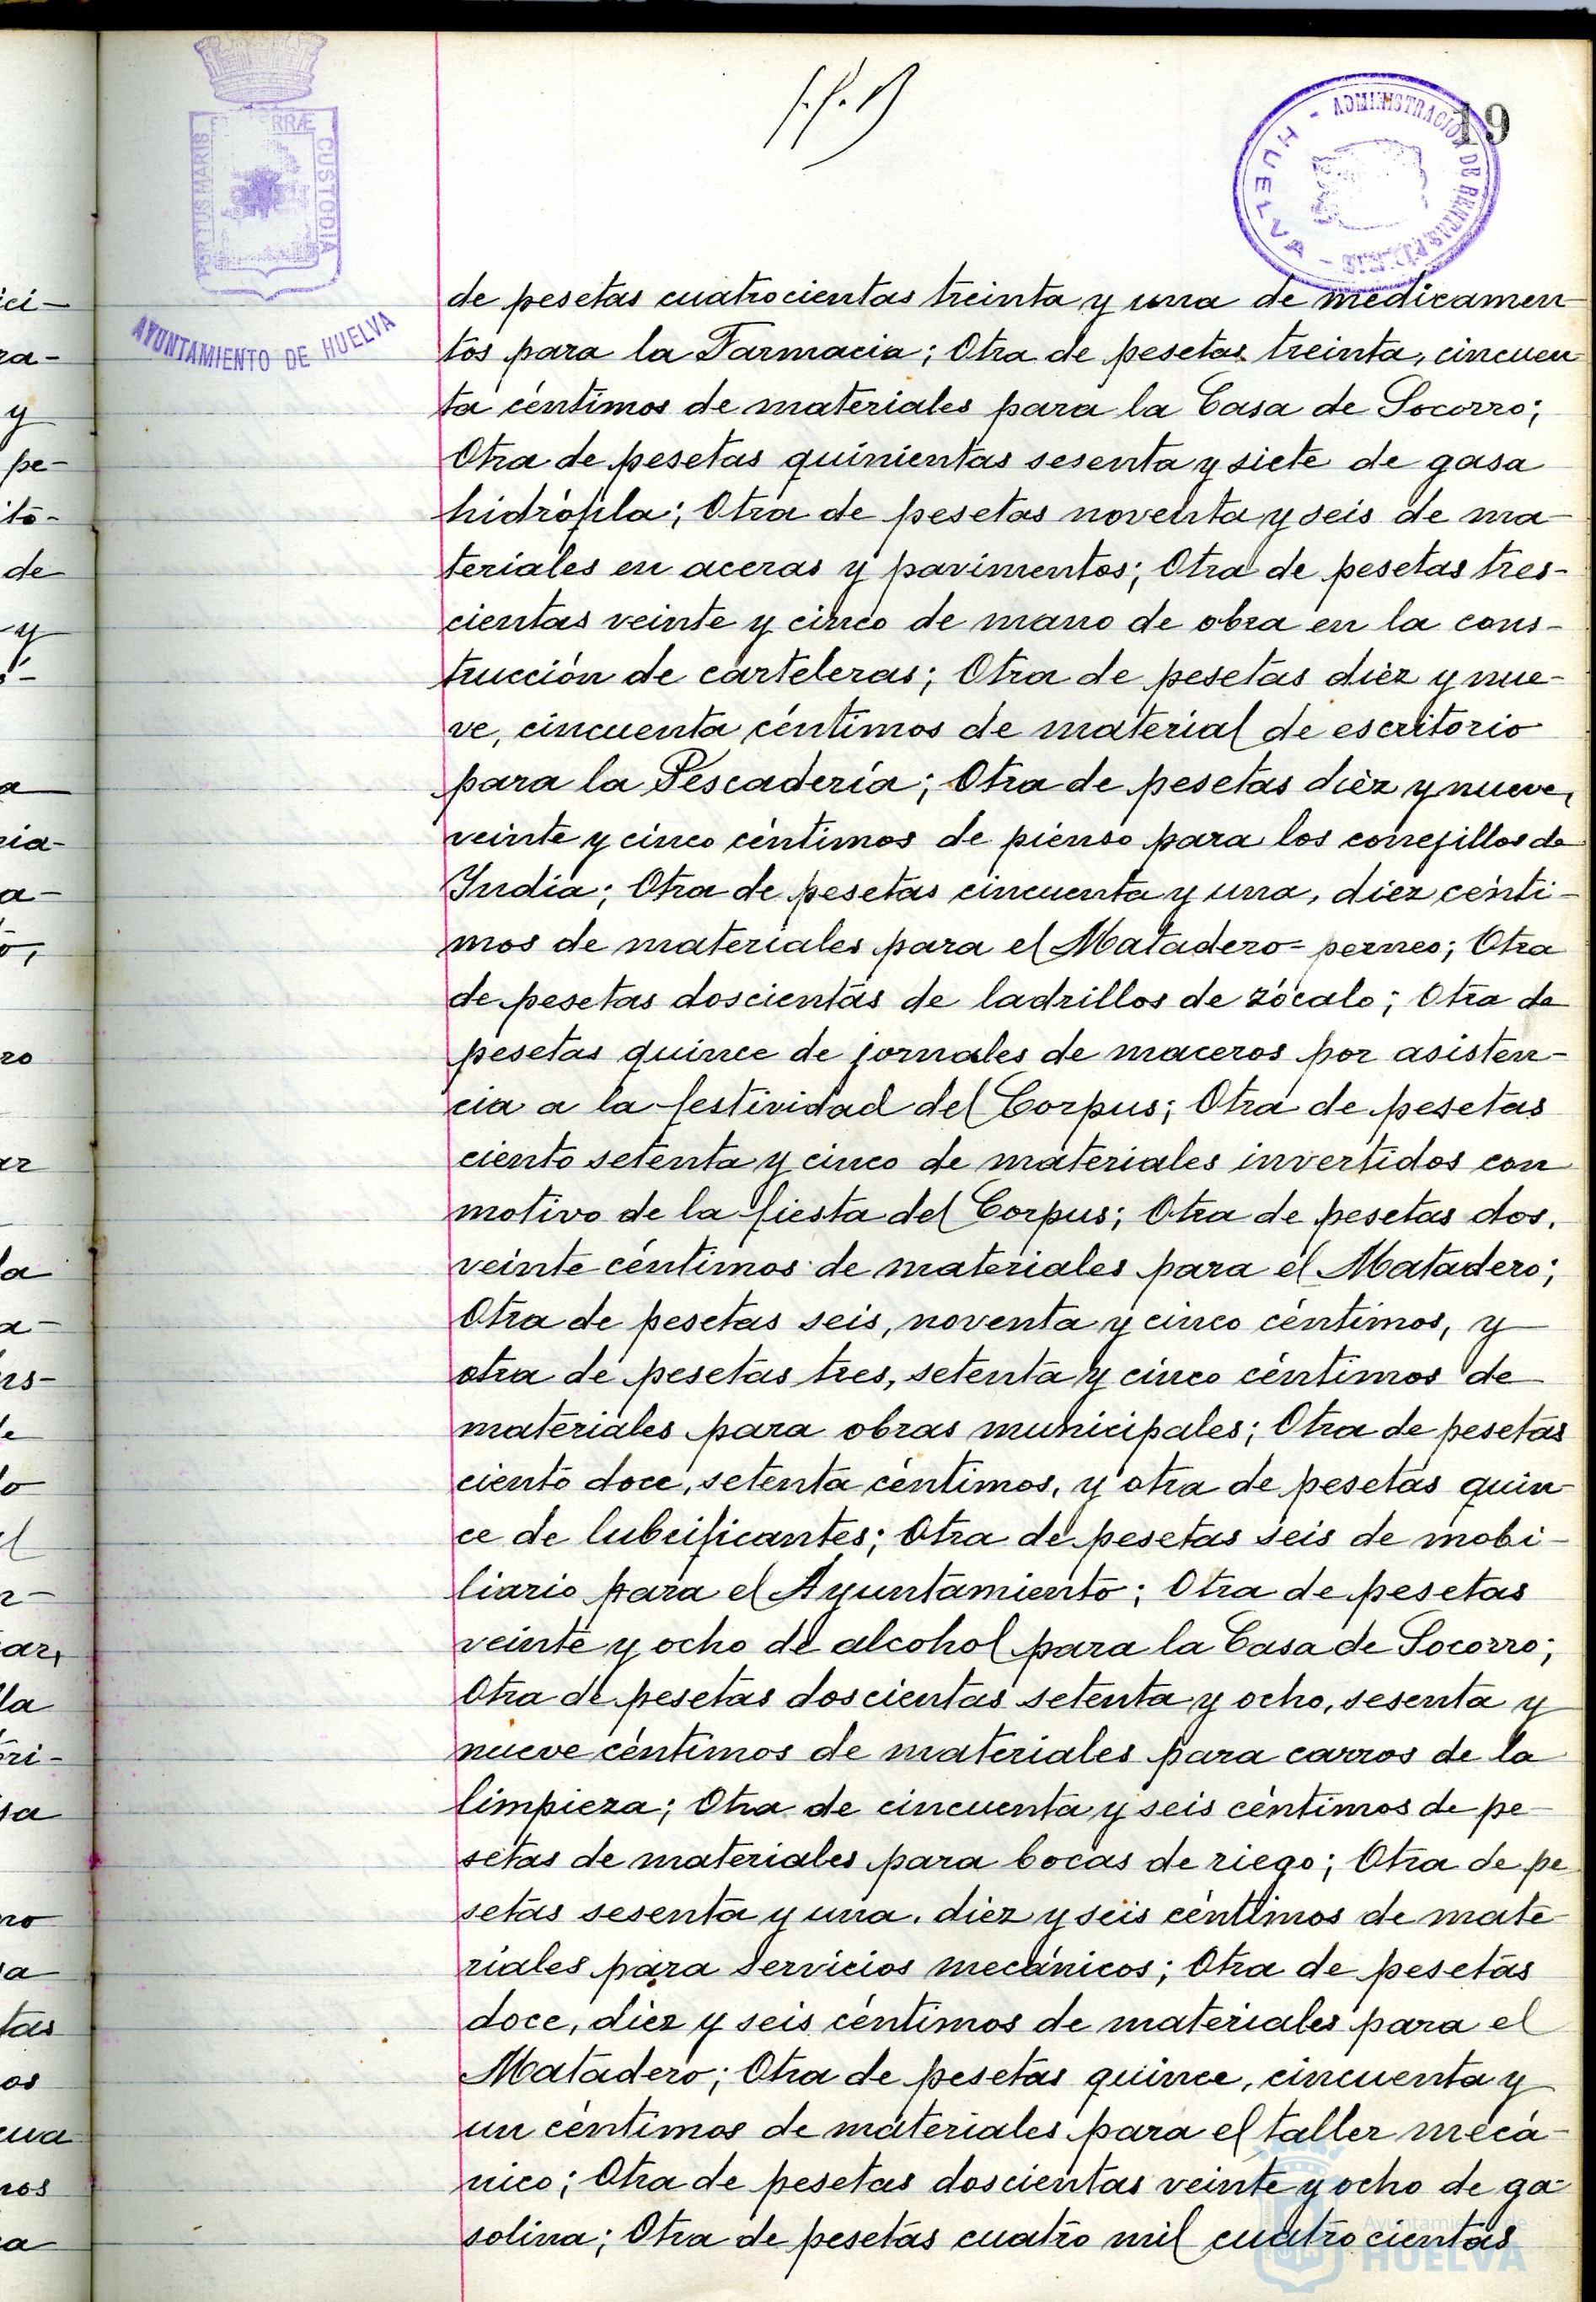 19
ADMINISTRACIÓN DE RENTAS
HUELVA
PORTUS MARIS
CUSTODIA
AYUNTAMIENTO DE HUELVA
de pesetas cuatrocientas treinta y una de medicamen
tos para la Farmacia; Otra de pesetas treinta, cincuen
ta céntimos de materiales para la Casa de Socorro;
Otra de pesetas quinientas sesenta y siete de gasa
hidrófila; Otra de pesetas noventa y seis de ma-
teriales en aceras y pavimentos; Otra de pesetas tres-
cientas veinte y cinco de mano de obra en la cons-
trucción de carteleras; Otra de pesetas diez y nue-
ve, cincuenta céntimos de material de escritorio
para la Pescadería; Otra de pesetas diez y nueve,
veinte y cinco céntimos de pienso para los conejillos de
India; Otra de pesetas cincuenta y una, diez cénti-
mos de materiales para el Matadero=perneo; Otra
de pesetas doscientas de ladrillos de zócalo; Otra de
pesetas quince de jornales de maceros por asisten-
cia a la festividad del Corpus; Otra de pesetas
ciento setenta y cinco de materiales invertidos con
motivo de la fiesta del Corpus; Otra de pesetas dos,
veinte céntimos de materiales para el Matadero;
Otra de pesetas seis, noventa y cinco céntimos, y
otra de pesetas tres, setenta y cinco céntimos de
materiales para obras municipales; Otra de pesetas
ciento doce, setenta céntimos, y otra de pesetas quin-
ce de lubrificantes; Otra de pesetas seis de mobi-
liario para el Ayuntamiento; Otra de pesetas
veinte y ocho de alcohol para la Casa de Socorro;
Otra de pesetas doscientas setenta y ocho, sesenta y
nueve céntimos de materiales para carros de la
limpieza; Otra de cincuenta y seis céntimos de pe-
setas de materiales para bocas de riego; Otra de pe
setas sesenta y una, diez y seis céntimos de mate
riales para servicios mecánicos; Otra de pesetas
doce, diez y seis céntimos de materiales para el
Matadero; Otra de pesetas quince, cincuenta y
un céntimos de materiales para el taller mecá-
nico; Otra de pesetas doscientas veinte y ocho de ga-
solina; Otra de pesetas cuatro mil cuatrocientas
Ayuntamiento de
HUELVA